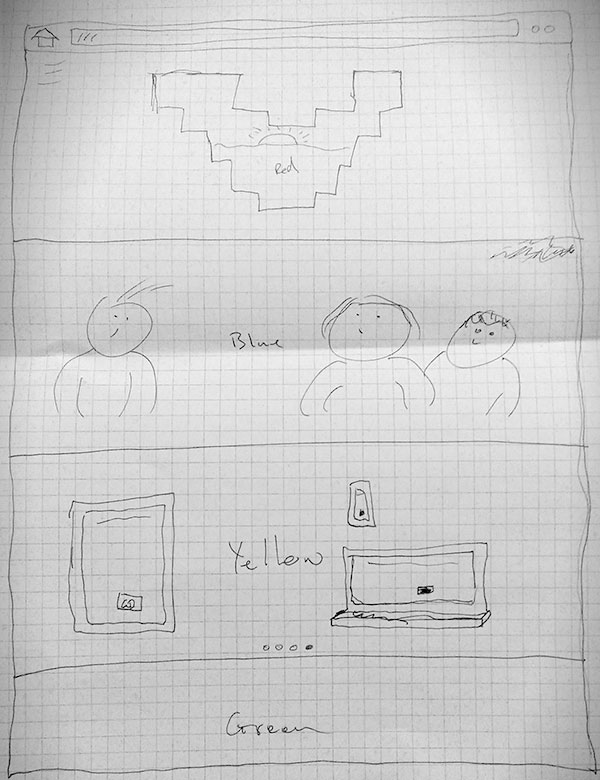 Red
Blue
Yellow
GO
Green